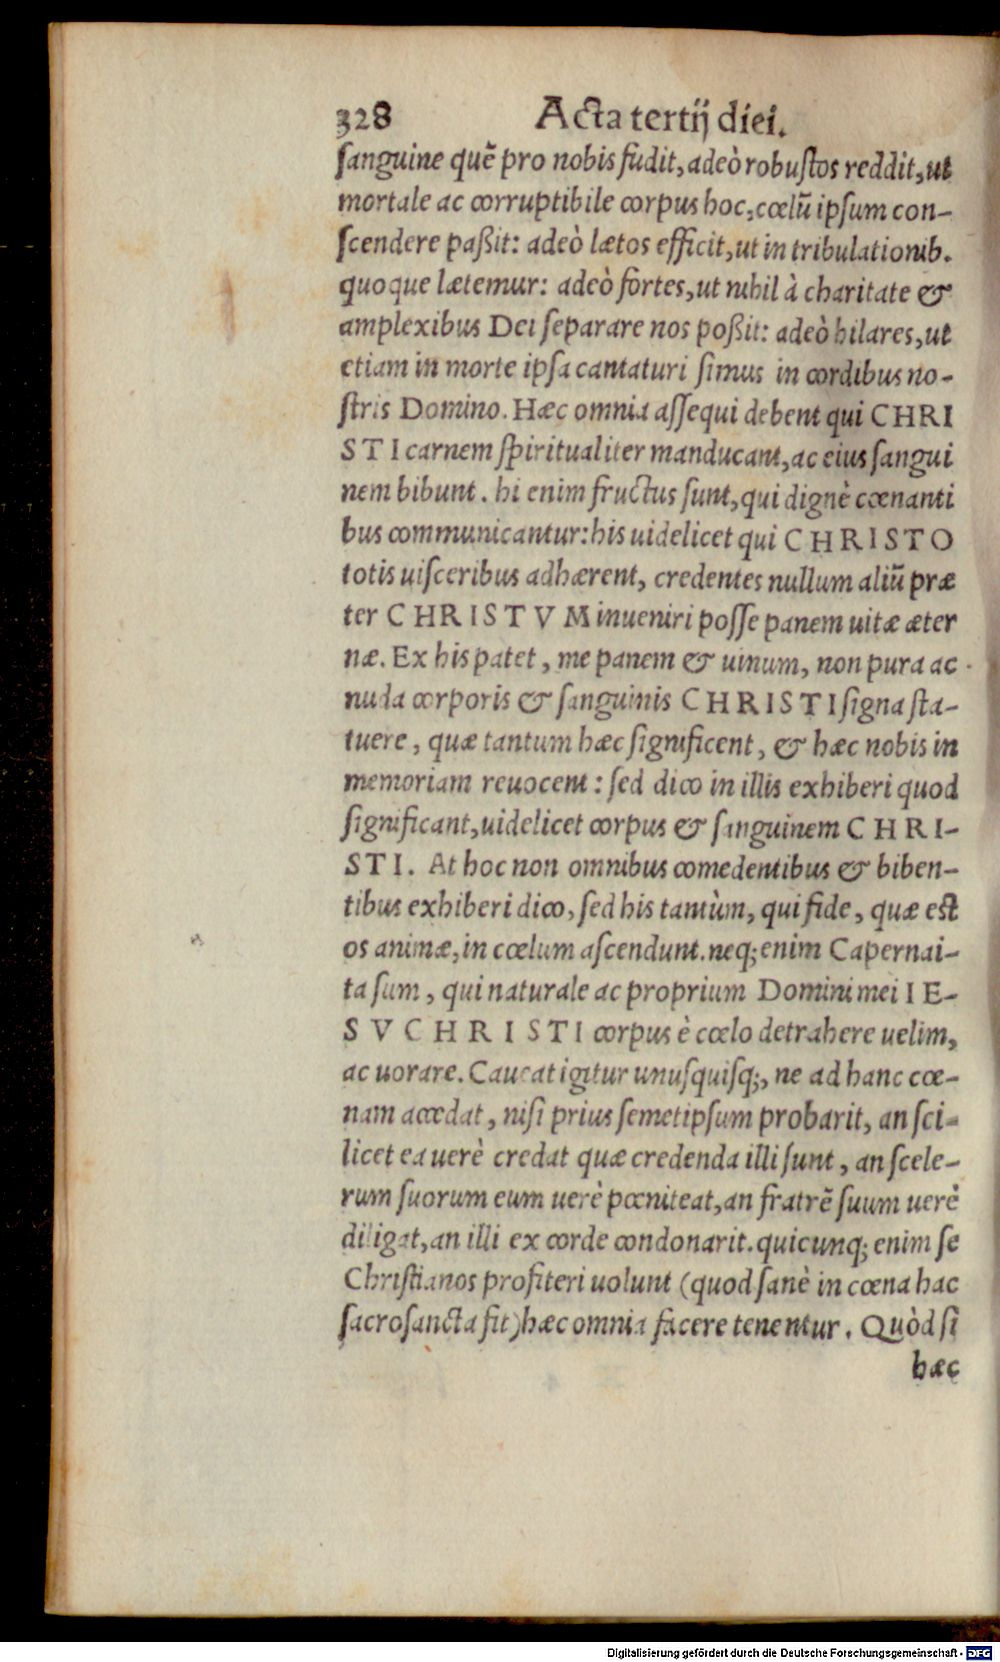 328 Acta tertij diei.
sanguine quẽ pro nobis fudit, adeò robustos reddit, ut
mortale ac corruptibile corpus hoc, cœlũ ipsum con-
scendere paßit: adeò lætos efficit, ut in tribulationib.
quoque lætemur: adeò fortes, ut nihil à charitate &
amplexibus Dei separare nos poßit: adeò hilares, ut
etiam in morte ipsa cantaturi simus in cordibus no-
stris Domino. Hæc omnia assequi debent qui CHRI
STI carnem spiritualiter manducant, ac eius sangui
nem bibunt. hi enim fructus sunt, qui dignè cœnanti
bus communicantur: his uidelicet qui CHRISTO
totis uisceribus adhærent, credentes nullum aliũ præ
ter CHRISTVM inueniri posse panem uitæ æter
næ. Ex his patet, me panem & uinum, non pura ac
nuda corporis & sanguinis CHRISTI signa sta-
tuere, quæ tantum hæc significent, & hæc nobis in
memoriam reuocent: sed dico in illis exhiberi quod
significant, uidelicet corpus & sanguinem CHRI-
STI. At hoc non omnibus comedentibus & biben-
tibus exhiberi dico, sed his tantùm, qui fide, quæ est
os animæ, in cœlum ascendunt. neq; enim Capernai-
ta sum, qui naturale ac proprium Domini mei IE-
SV CHRISTI corpus è cœlo detrahere uelim,
ac uorare. Caueat igitur unusquisq;, ne ad hanc cœ-
nam accedat, nisi prius semetipsum probarit, an sci-
licet ea uerè credat quæ credenda illi sunt, an scele-
rum suorum eum uerè pœniteat, an fratrẽ suum uerè
diligat, an illi ex corde condonarit. quicunq; enim se
Christianos profiteri uolunt (quod sanè in cœna hac
sacrosancta fit) hæc omnia facere tenentur. Quòd si
hæc
Digitalisierung gefördert durch die Deutsche Forschungsgemeinschaft - DFG